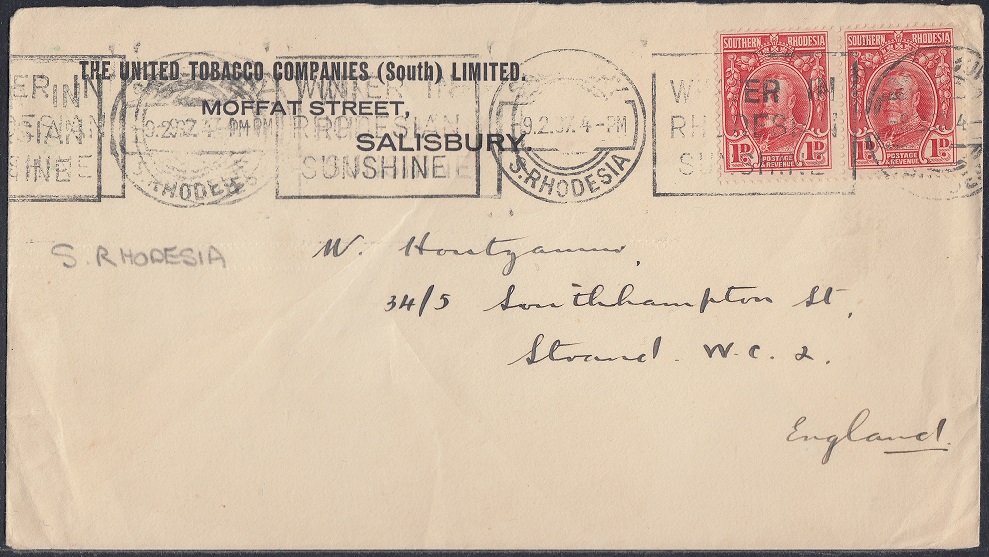 THE UNITED TOBACCO COMPANIES (South) LIMITED.
MOFFAT STREET,
SALISBURY.
WINTER IN
RHODESIAN
SUNSHINE
9.2.37. 4-PM
S.RHODESIA
WINTER IN
RHODESIAN
SUNSHINE
SOUTHERN RHODESIA
1D POSTAGE & REVENUE 1D
SOUTHERN RHODESIA
1D POSTAGE & REVENUE 1D
S. RHODESIA
34/5 Southhampton St,
Strand. W.C. 2.
England.